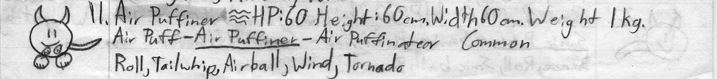 11. Air Puffiner HP:60 Height:60cm, Width60cm. Weight 1kg.
Air Puff-Air Puffiner-Air Puffinateor Common
Roll, Tailwhip, Airball, Wind, Tornado